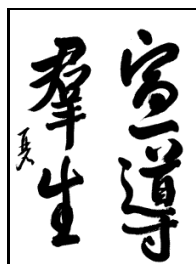 宣導
羣生